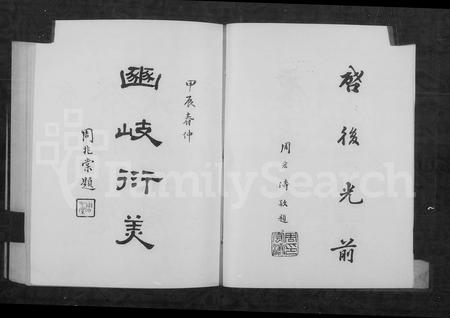 啓後光前
周宏濤敬題
甲辰春仲
豳岐衍美
周兆棠題
FamilySearch